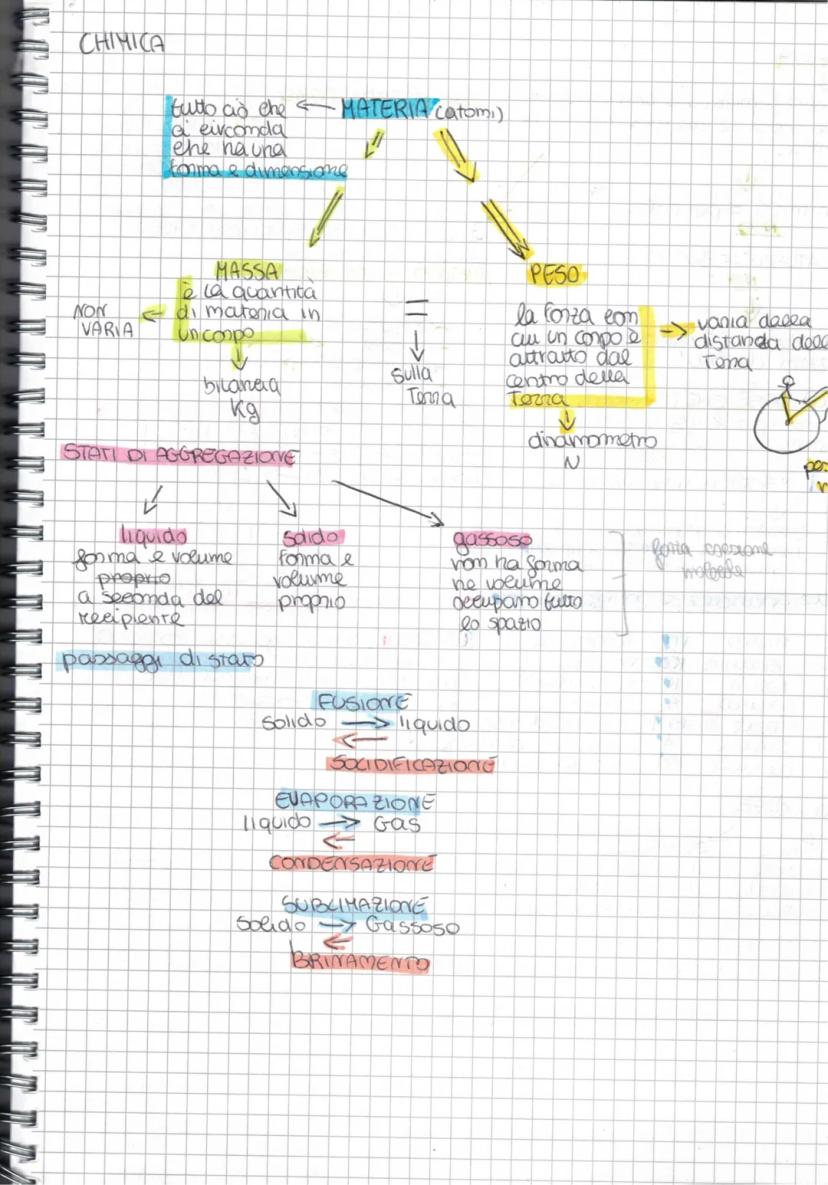 CHIMICA
tutto ciò che ← MATERIA (atomi)
ci circonda
che ha una
forma e dimensione
MASSA
è la quantità
di materia in
un corpo
NON
VARIA
bilancia
Kg
=
sulla
Terra
PESO
la forza con
cui un corpo è
attratto dal
centro della
Terra
varia dalla
distanza
Terra
dinamometro
N
STATI DI AGGREGAZIONE
liquido
forma e volume
proprio
a seconda del
recipiente
solido
forma e
volume
proprio
gassoso
non ha forma
ne volume
occupano tutto
lo spazio
forza coesione
passaggi di stato
FUSIONE
solido → liquido
←
SOLIDIFICAZIONE
EVAPORAZIONE
liquido → Gas
←
CONDENSAZIONE
SUBLIMAZIONE
Solido → Gassoso
←
BRINAMENTO